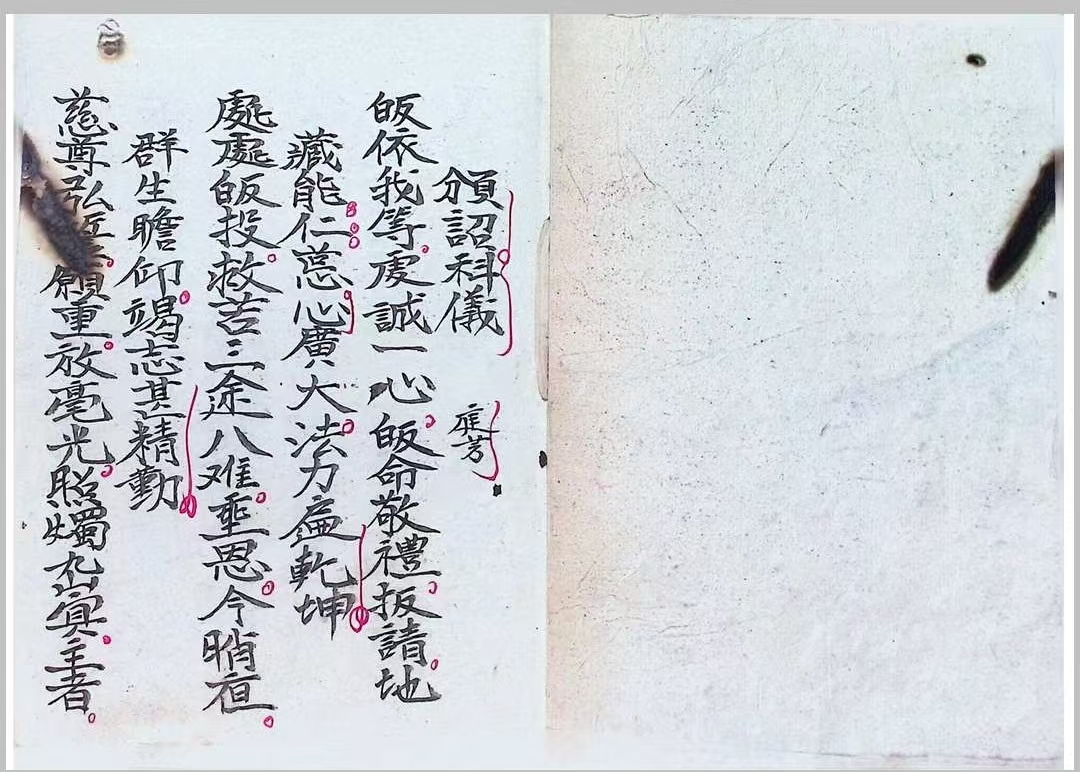 頒詔科儀 庭芳
皈依我等虔誠一心皈命敬禮扳請地
藏能仁慈心廣大法力遍乾坤
處處皈投救苦三途八难垂恩今晌夜
群生瞻仰竭志甚精勤
慈尊弘 願重放毫光照燭九冥主者